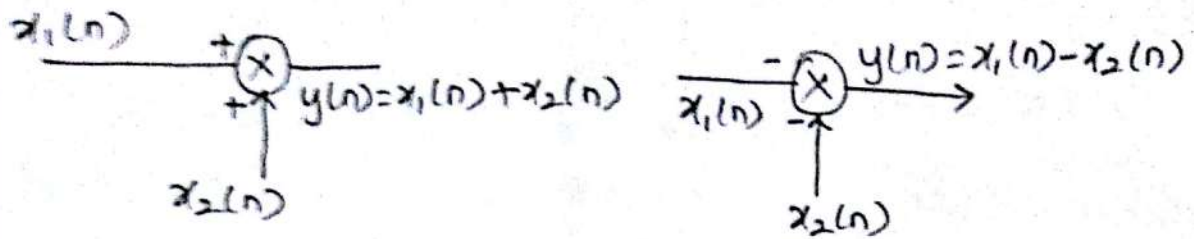 x₁(n)
+ × y(n)=x₁(n)+x₂(n)
+
x₂(n)
- × y(n)=x₁(n)-x₂(n)
x₁(n) -
x₂(n)